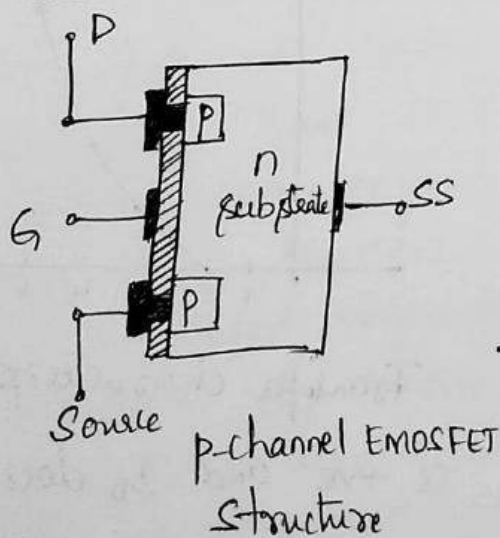 D
P
n
substrate
SS
G
P
Source
p-channel EMOSFET
Structure